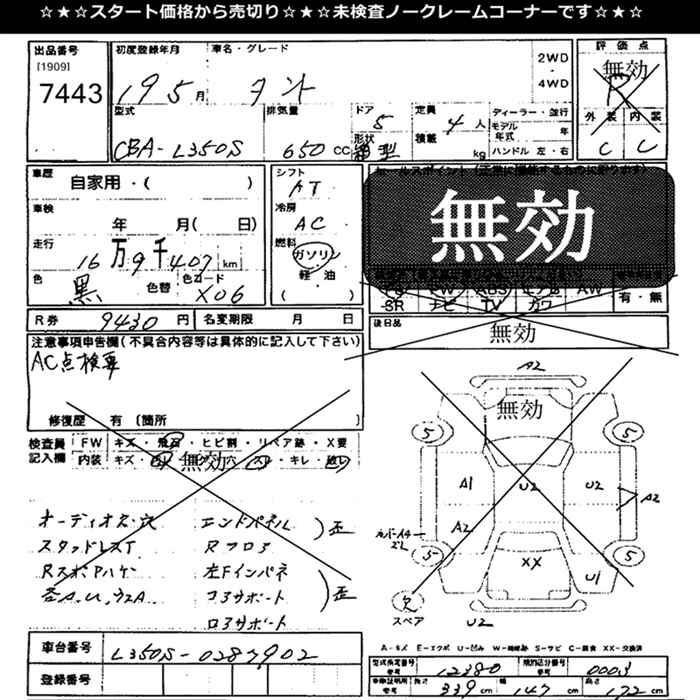 ☆★☆★スタート価格から売切り☆★☆★未検査ノークレームコーナーです☆★☆★
出品番号
[1909]
7443
初度登録年月
19 5 月
車名・グレード
タント
2WD
・
4WD
評価点
無効
R
外装 内装
C C
型式
CBA-L350S
排気量
650 cc
ドア
5
形状
箱型
定員
4 人
積載
kg
ディーラー・並行
モデル年式 年
ハンドル 左・右
車歴
自家用・( )
車検
年 月( 日)
走行
16万9千407 km
色
黒
色替
色コード
X06
シフト
AT
冷房
AC
燃料
ガソリン
軽・油
( )
無効
SR ナビ TV カワ AW
有・無
R券 9430 円
名変期限 月 日
後日品
無効
注意事項申告欄(不具合内容等は具体的に記入して下さい)
AC点検要
修復歴 有 〔箇所
検査員記入欄
FW キズ・飛石・ヒビ割・リペア跡・X要
内装 キズ・無効 穴・スレ・キレ・
オーディオス穴
スタッドレスT
エンドパネル
Rフロア
歪
左Fインパネ
コアサポート
ロアサポート
歪
車台番号
L350S-0287902
登録番号
A2
無効
5
5
A1
U2
U2
A2
カバーイタ
ズレ
A2
5
5
XX
U1
欠
スペア
U2
A-キズ E-エクボ U-凹み W-補修跡 S-サビ C-腐食 XX-交換済
型式指定番号
12380
類別区分番号
0003
長さ 339 cm
幅 147 cm
高さ 172 cm